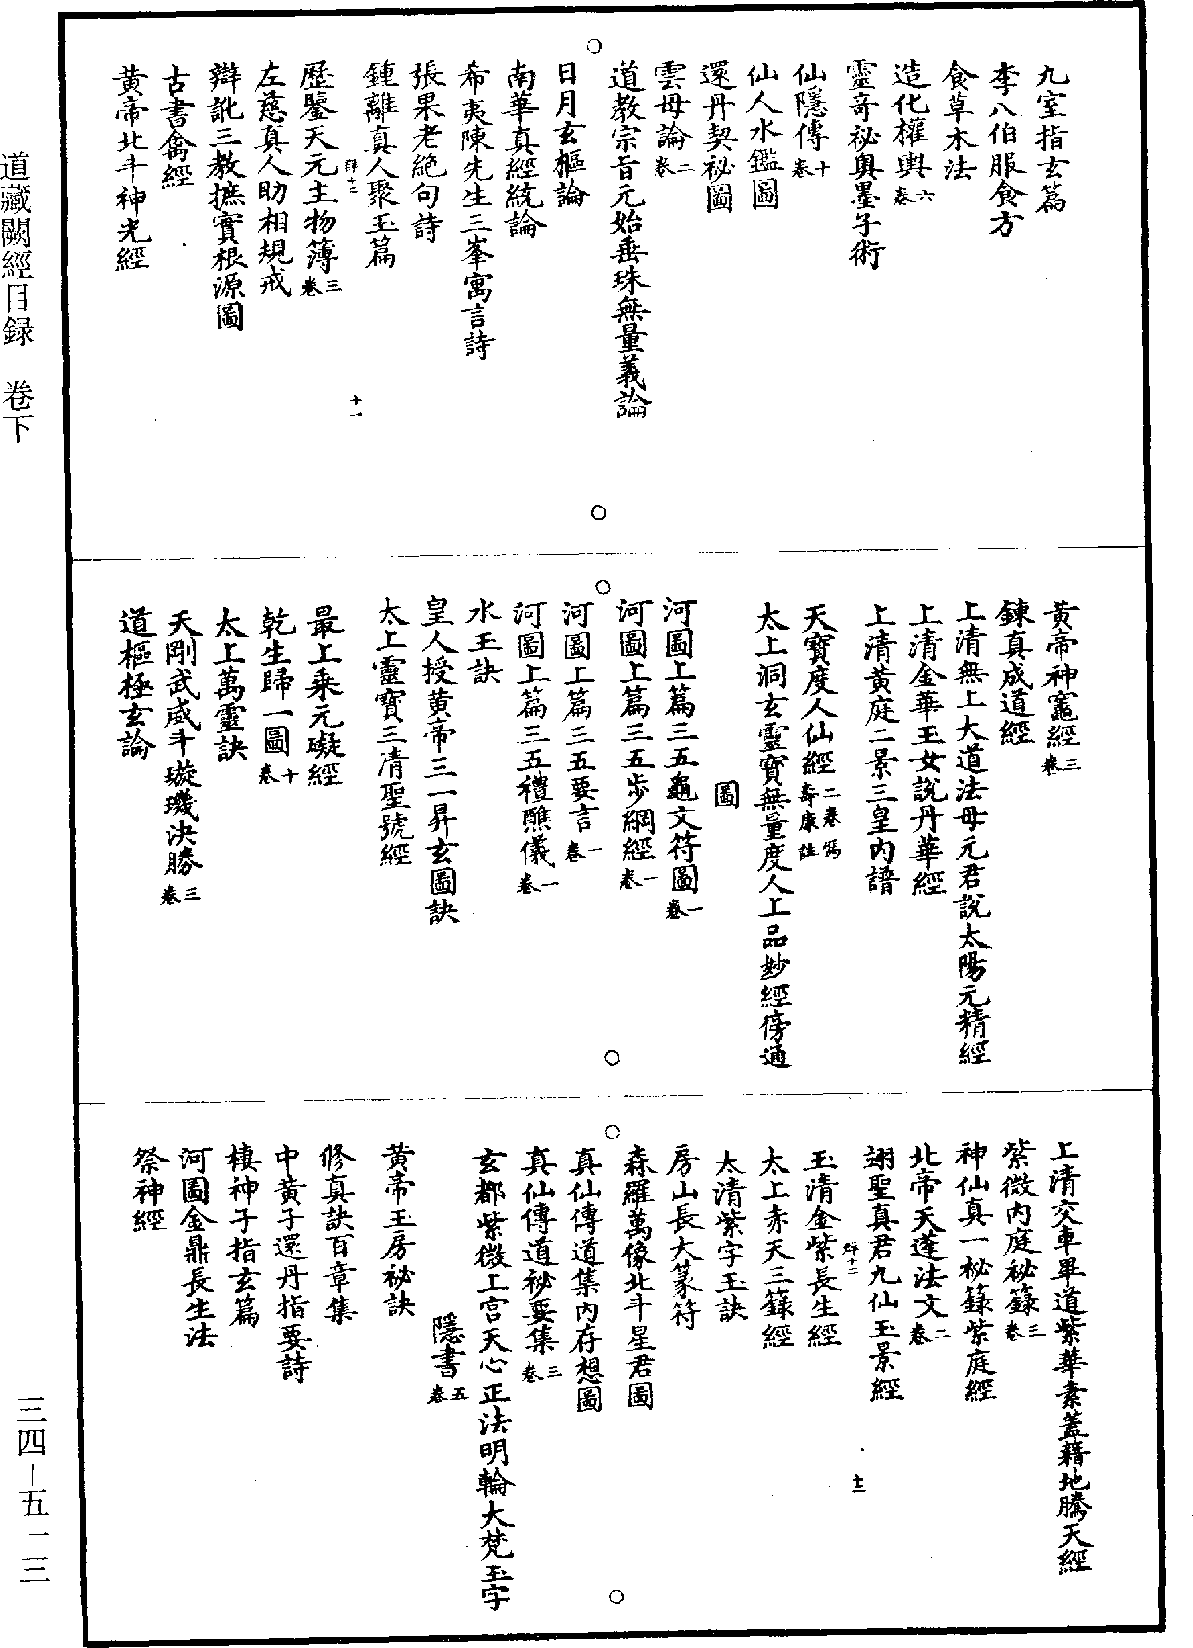 九室指玄篇
李八伯服食方
食草木法
造化權輿六卷
靈奇祕奧墨子術
仙隱傳十卷
仙人水鑑圖
還丹契祕圖
雲母論二卷
道教宗旨元始垂珠無量義論
日月玄樞論
南華真經統論
希夷陳先生三峯寓言詩
張果老絕句詩
鍾離真人聚玉篇
十一
歷鑒天元主物簿三卷
左慈真人助相規戒
辯訛三教摭實根源圖
古書禽經
黃帝北斗神光經
黃帝神竈經三卷
鍊真成道經
上清無上大道法母元君說太陽元精經
上清金華玉女說丹華經
上清黃庭二景三皇內譜
天寶度人仙經二卷馮壽康註
太上洞玄靈寶無量度人上品妙經傍通
圖
河圖上篇三五龜文符圖一卷
河圖上篇三五步綱經一卷
河圖上篇三五要言一卷
河圖上篇三五禮醮儀一卷
水玉訣
皇人授黃帝三一昇玄圖訣
太上靈寶三清聖號經
最上乘元礙經
乾生歸一圖十卷
太上萬靈訣
天剛武威斗璇璣決勝三卷
道樞極玄論
上清交車畢道紫華素蓋藉地騰天經
紫微內庭祕籙三卷
神仙真一祕籙紫庭經
北帝天蓬法文二卷
翊聖真君九仙玉景經
十二
玉清金紫長生經
太上赤天三籙經
太清紫字玉訣
房山長大篆符
森羅萬像北斗星君圖
真仙傳道集內存想圖
真仙傳道祕要集三卷
玄都紫微上宫天心正法明輪大梵玉字
隱書五卷
黃帝玉房祕訣
修真訣百章集
中黃子還丹指要詩
棲神子指玄篇
河圖金鼎長生法
祭神經
道藏闕經目録　卷下
三四－五一三